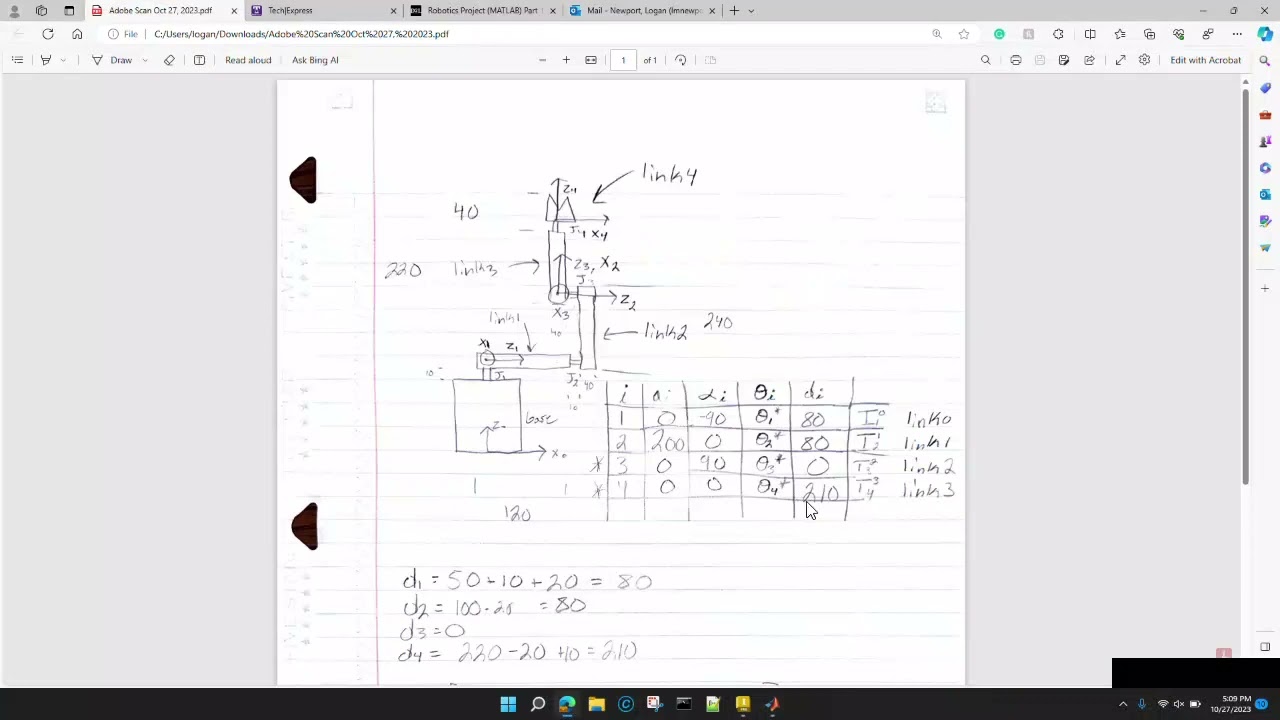 Adobe Scan Oct 27, 2023.pdf
Tech|Express
Robotics Project (MATLAB) Part
Mail - Newport, Logan (lnnewpo
File
C:/Users/logan/Downloads/Adobe%20Scan%20Oct%2027,%202023.pdf
Draw
Read aloud
Ask Bing AI
1
of 1
Edit with Acrobat
link4
Z4
40
J4 X4
220 link3
Z3, X2
Z2
X3
link1
40
link2 240
X1
Z1
10
J1
J2
40
10
base
X0
i ai αi θi di
1 0 -90 θ1* 80 T1^0 link0
2 200 0 θ2* 80 T2^1 link1
* 3 0 90 θ3* 0 T3^2 link2
* 4 0 0 θ4* 210 T4^3 link3
120
d1 = 50 + 10 + 20 = 80
d2 = 100 - 20 = 80
d3 = 0
d4 = 220 - 20 + 10 = 210
5:09 PM
10/27/2023